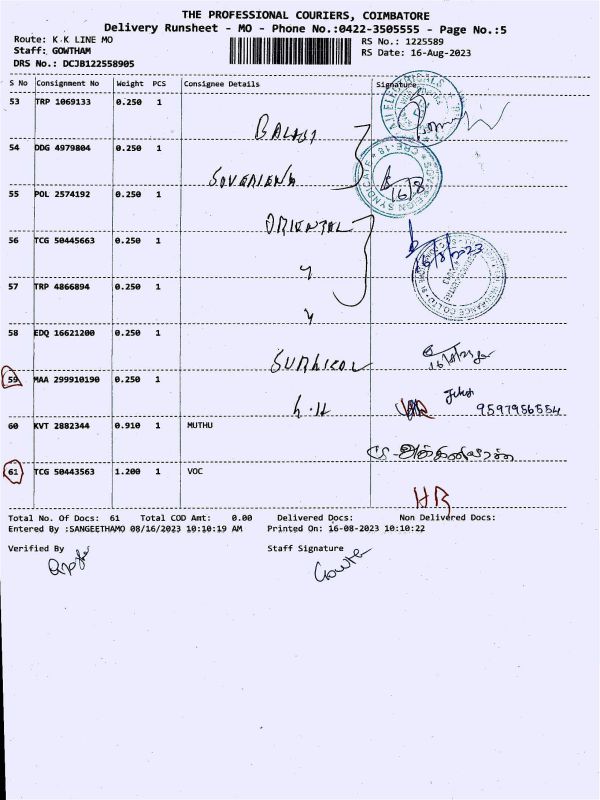 THE PROFESSIONAL COURIERS, COIMBATORE
Delivery Runsheet - MO - Phone No.:0422-3505555 - Page No.:5
Route: K K LINE MO
RS No.: 1225589
Staff: GOWTHAM
RS Date: 16-Aug-2023
DRS No.: DCJB122558905
S No Consignment No Weight PCS Consignee Details Signature
53 TRP 1069133 0.250 1
BALAJI
54 DDG 4979804 0.250 1
SOVERIENG
16/8
55 POL 2574192 0.250 1
ORIENTAL
56 TCG 50445663 0.250 1
16/8/2023
57 TRP 4866894 0.250 1
58 EDQ 16621200 0.250 1
SURHICOL
59 MAA 299910190 0.250 1
h.H
9597956554
60 KVT 2882344 0.910 1 MUTHU
61 TCG 50443563 1.200 1 VOC
HR
Total No. Of Docs: 61 Total COD Amt: 0.00 Delivered Docs: Non Delivered Docs:
Entered By :SANGEETHAMO 08/16/2023 10:10:19 AM Printed On: 16-08-2023 10:10:22
Verified By Staff Signature